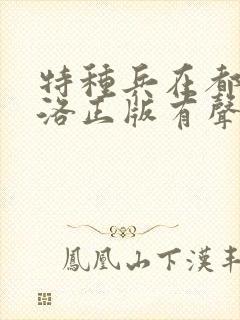 特種兵在都
洛正版有聲
鳳凰山下漢丰